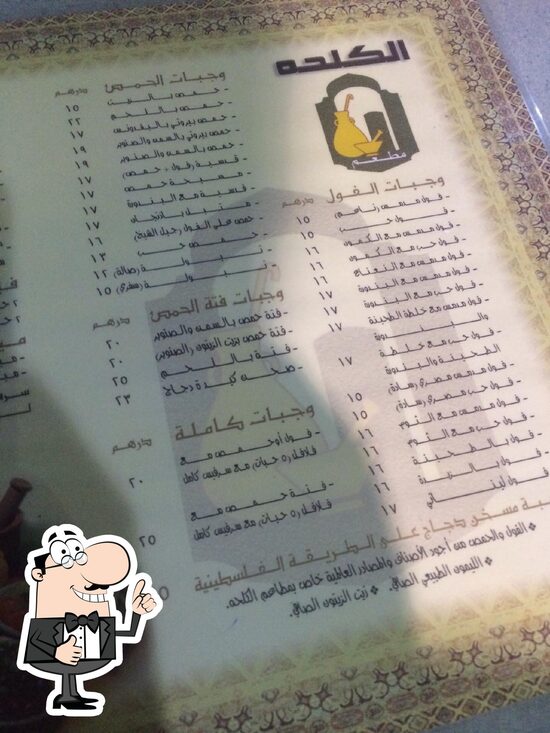 الكلحه
مطعم
وجبات الفول
درهم
- فول مدمس (ناعم) ١٥
- فول حب ١٥
- فول مدمس مع الكمون ١٦
- فول حب مع الكمون ١٦
- فول مدمس مع النعناع ١٦
- فول مدمس مع البندورة ١٧
- فول حب مع البندورة ١٧
- فول مدمس مع خلطة الطحينة والبندورة ١٧
- فول حب مع خلطة الطحينة والبندورة ١٧
- فول مدمس مصري (سادة) ١٥
- فول حب مصري (سادة) ١٥
- فول مدمس مع الثوم ١٦
- فول حب مع الثوم ١٦
- فول بالطحينة ١٦
- فول بالزبدة ١٦
فول لبناني ١٧
وجبات الحمص
درهم
- حمص بالزيت ١٥
- حمص باللحم ٢٢
- حمص بيروتي بالبقدونس ١٧
- حمص بيروتي بالسمنه والصنوبر ١٩
- حمص بالسمنه والصنوبر ١٩
- قدسية (فول + حمص) ١٧
- مسبحة حمص ١٧
- قدسية مع البندورة ١٧
- متبل باذنجان ١٧
- حمص على الفول (حيل الشيخ) ١٦
- حمص حب ١٣
- تبولة (صالة) ١٢
- تبولة (سفري) ١٥
وجبات فتة الحمص
درهم
- فتة حمص بالسمنه والصنوبر ٢٠
- فتة حمص بزيت الزيتون (الصنوبر) ٢٠
- فتة باللحم ٢٥
- صحن كبدة دجاج ٢٣
وجبات كاملة
درهم
- فول أو حمص مع
فلافل (٥ حبات) مع سرفيس كامل ٢٠
- فتة حمص مع
فلافل (٥ حبات) مع سرفيس كامل ٢٥
بة مسخن دجاج على الطريقة الفلسطينية
الفول والحمص من أجود الأصناف والمصادر العالمية خاص بمطاعم الكلحه.
الليمون الطبيعي الصافي. زيت الزيتون الصافي.